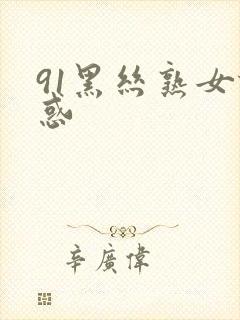 91黑丝熟女
惑
辛廣偉